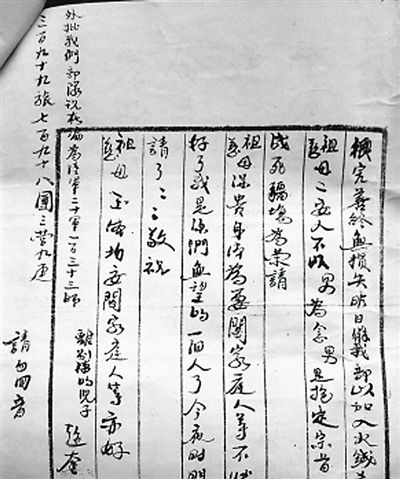 機完善終無損失明日我部以加入火綫
祖慈母二安人不以男為念男是抱定宗旨
战死疆場為榮請
祖慈母保贵身体為要闔家庭人等不
好了我是你們無望的一個人了今夜時間
請了之之敬祝
祖慈母玉体均安闔家庭人等亦好
離別的兒子
請勿回音
外批我們部隊現改編為陸軍二十軍一百三十三師
三百九十九旅七百九十八團三營九連